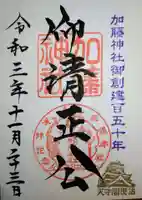 加藤神社御創建百五十年
仰清正公
加藤神社
令和三年十一月二十三日
天守閣復活